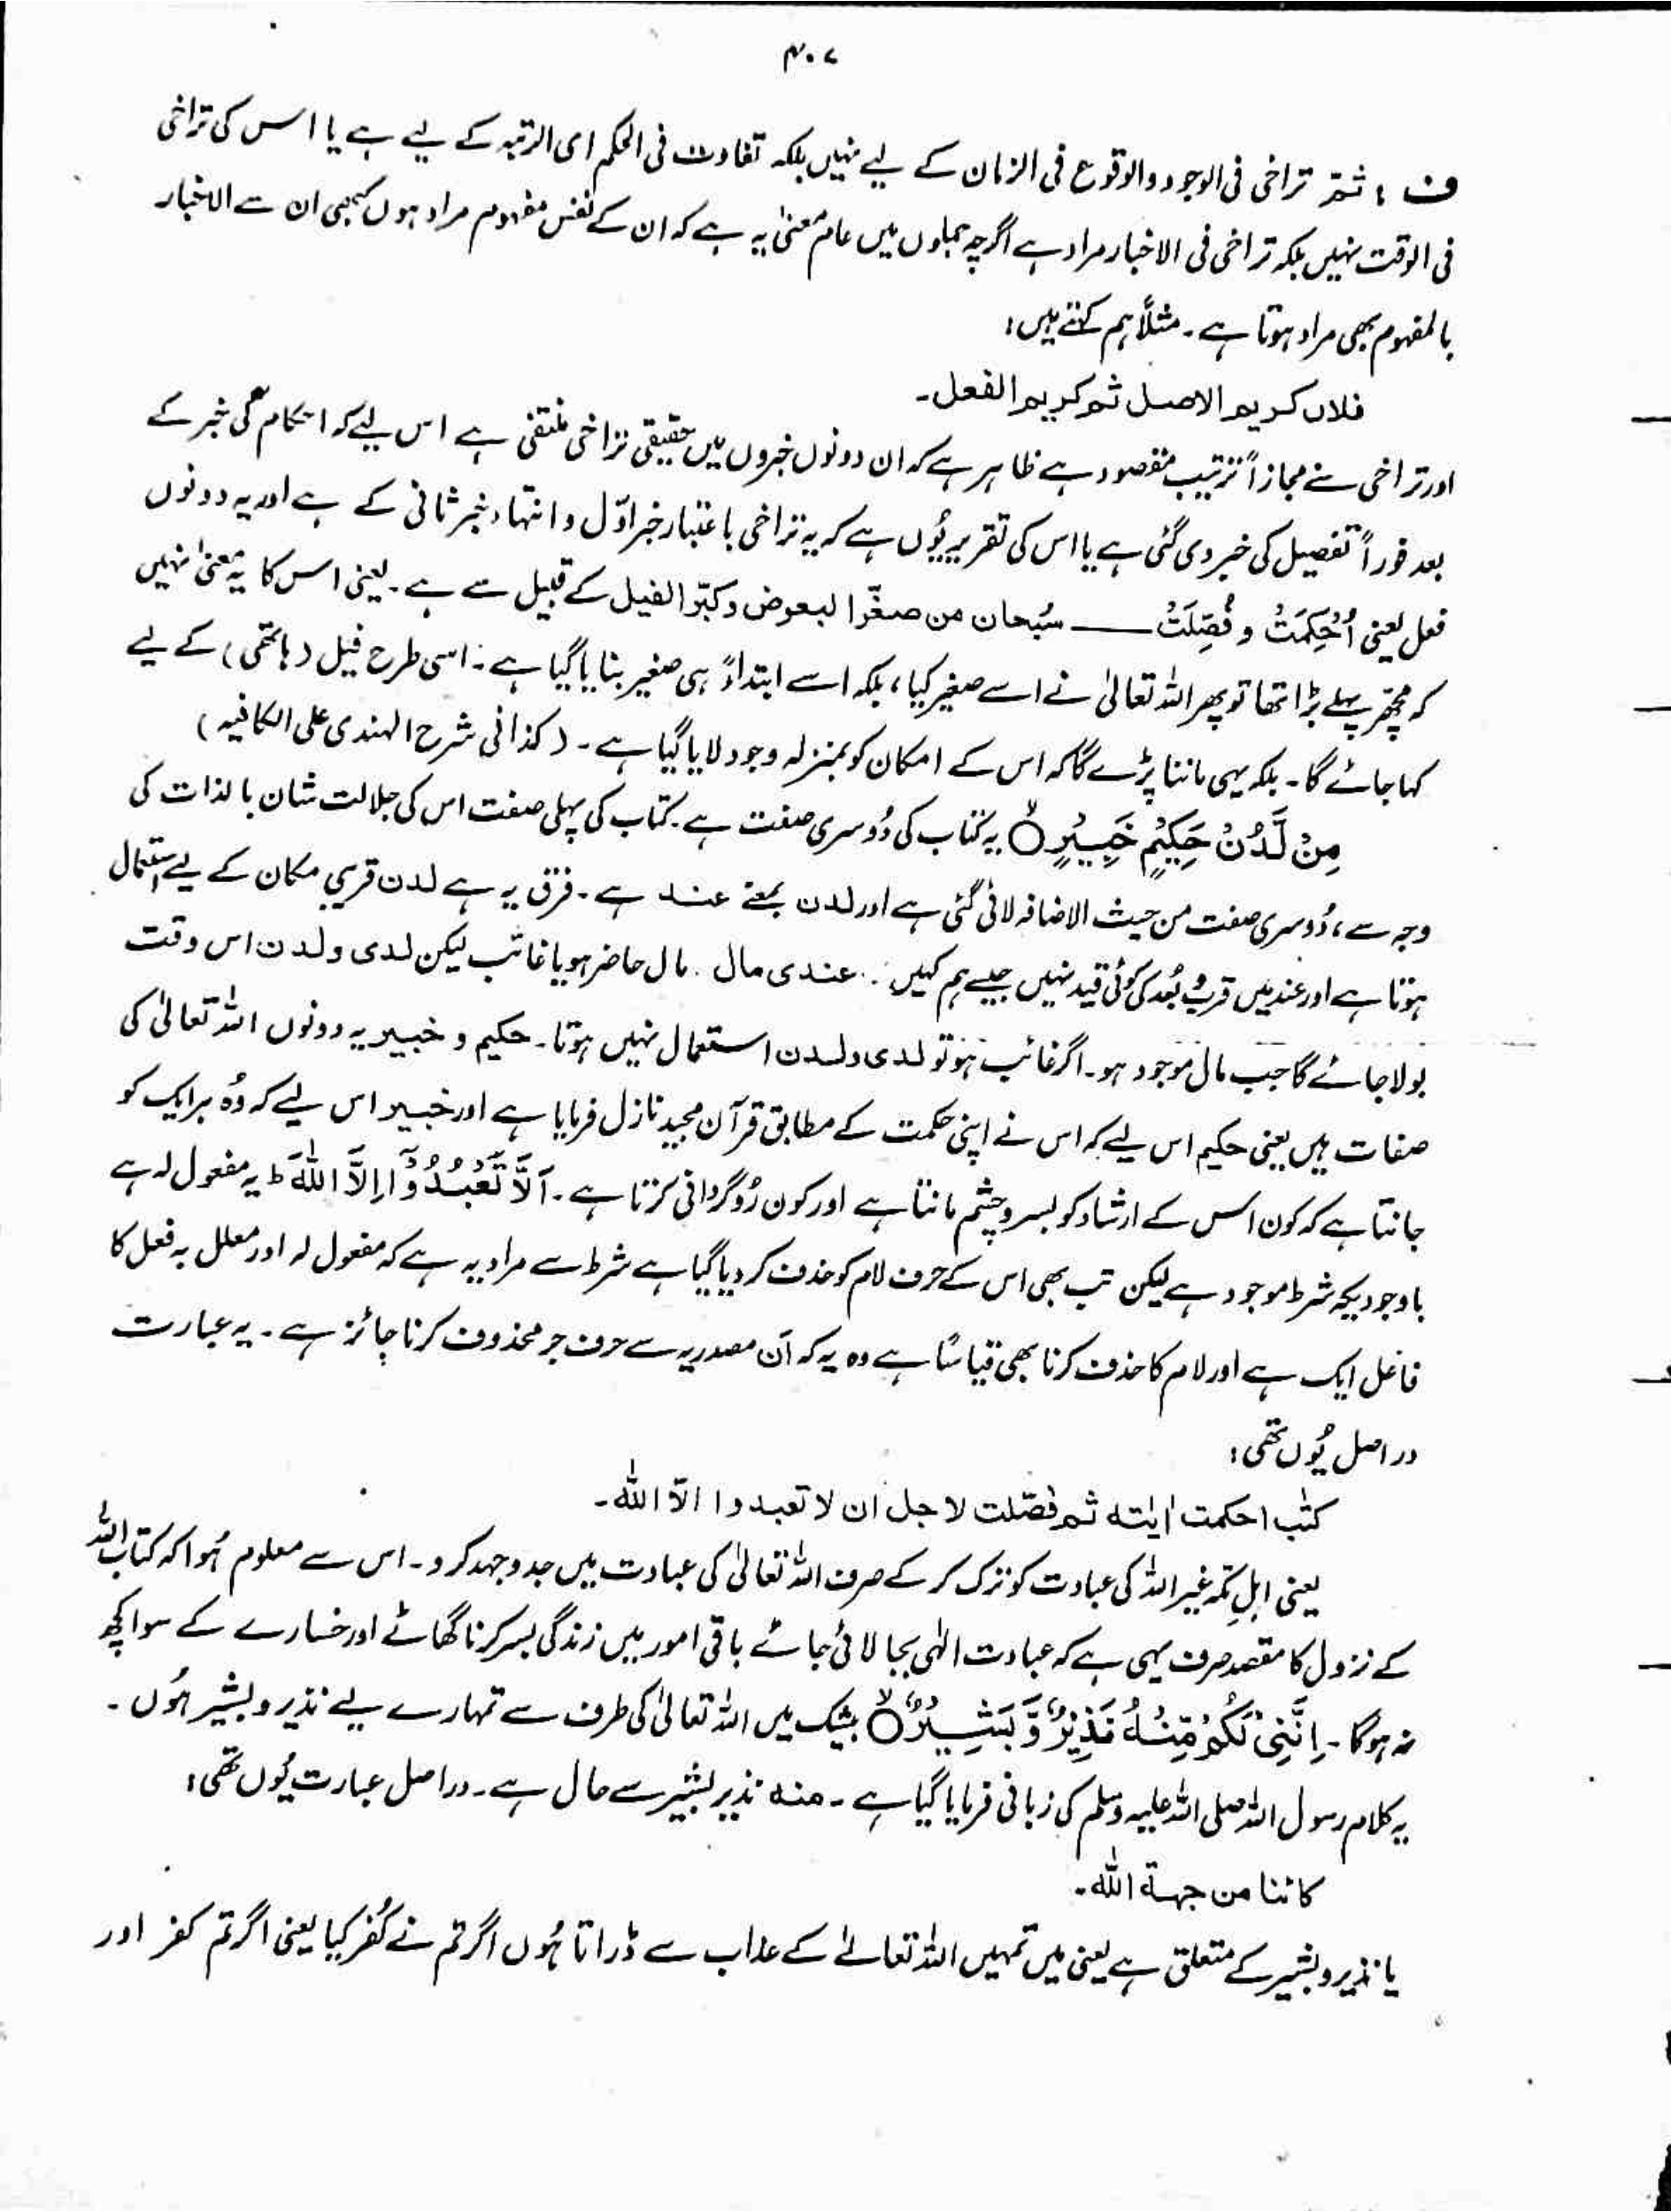 ۴۰۷
ف : ثمّ تراخی فی الوجود والوقوع فی الزمان کے لیے نہیں بلکہ تفاوت فی الحکم ای الرتبہ کے لیے ہے یا اس کی تراخی
فی الوقت نہیں بلکہ تراخی فی الاخبار مراد ہے اگرچہ جملوں میں عام معنیٰ یہ ہے کہ ان کے نفس مفہوم مراد ہوں کبھی ان سے الاخبار
بالمفہوم بھی مراد ہوتا ہے ۔ مثلاً ہم کہتے ہیں :
فلاں کریم الاصل ثم کریم الفعل ۔
اور تراخی سے مجازاً ترتیب مقصود ہے ظاہر ہے کہ ان دونوں خبروں میں حقیقی تراخی منتفی ہے اس لیے کہ احکام کی خبر کے
بعد فوراً تفصیل کی خبر دی گئی ہے یا اس کی تقریر یُوں ہے کہ یہ تراخی باعتبار خبر اوّل و انتہاء خبر ثانی کے ہے اور یہ دونوں
فعل یعنی اُحْکِمَتْ و فُصِّلَتْ ــــــ سُبحان من صغّرا لبعوض و کبّر الفیل کے قبیل سے ہے ۔ یعنی اس کا یہ معنیٰ نہیں
کہ مچھر پہلے بڑا تھا تو پھر اللہ تعالیٰ نے اسے صغیر کیا ، بلکہ اسے ابتداءً ہی صغیر بنایا گیا ہے ۔ اسی طرح فیل ( ہاتھی ) کے لیے
کہا جائے گا ۔ بلکہ یہی ماننا پڑے گا کہ اس کے امکان کو بمنزلہ وجود لایا گیا ہے ۔ ( کذا فی شرح الہندی علی الکافیہ )
مِنْ لَّدُنْ حَکِیْمٍ خَبِیْرٍ ۙ یہ کتاب کی دُوسری صفت ہے ۔ کتاب کی پہلی صفت اس کی جلالت شان بالذات کی
وجہ سے ، دُوسری صفت من حیث الاضافہ لائی گئی ہے اور لدن بمعنے عند ہے ۔ فرق یہ ہے لدن قریبِ مکان کے لیے استعمال
ہوتا ہے اور عند میں قرب بُعد کی کوئی قید نہیں جیسے ہم کہیں : عندی مال . مال حاضر ہو یا غائب لیکن لدی ولدن اس وقت
بولا جائے گا جب مال موجود ہو ۔ اگر غائب ہو تو لدی ولدن استعمال نہیں ہوتا ۔ حکیم و خبیر یہ دونوں اللہ تعالیٰ کی
صفات ہیں یعنی حکیم اس لیے کہ اس نے اپنی حکمت کے مطابق قرآن مجید نازل فرمایا ہے اور خبیر اس لیے کہ وُہ ہر ایک کو
جانتا ہے کہ کون اس کے ارشاد کو بسر و چشم مانتا ہے اور کون رُوگردانی کرتا ہے ۔ اَلَّا تَعْبُدُوْٓا اِلَّا اللّٰهَ ؕ یہ مفعول لہ ہے
باوجودیکہ شرط موجود ہے لیکن تب بھی اس کے حرف لام کو حذف کر دیا گیا ہے شرط سے مراد یہ ہے کہ مفعول لہ اور معلل بہ فعل کا
فاعل ایک ہے اور لام کا حذف کرنا بھی قیاسًا ہے وہ یہ کہ اَن مصدریہ سے حرف جر محذوف کرنا جائز ہے ۔ یہ عبارت
در اصل یُوں تھی :
کتٰب احکمت اٰیٰتہ ثم فصّلت لاجل ان لا تعبدوا الّا اللّٰہ ۔
یعنی اہلِ مکّہ غیر اللہ کی عبادت کو ترک کر کے صرف اللہ تعالیٰ کی عبادت میں جدوجہد کرو ۔ اس سے معلوم ہُوا کہ کتاب اللہ
کے نزول کا مقصد صرف یہی ہے کہ عبادت الٰہی بجا لائی جائے باقی امور میں زندگی بسر کرنا گھاٹے اور خسارے کے سوا کچھ
نہ ہوگا ۔ اِنَّنِیْ لَکُمْ مِّنْهُ نَذِیْرٌ وَّ بَشِیْرٌ ۙ بیشک میں اللہ تعالیٰ کی طرف سے تمہارے لیے نذیر و بشیر ہُوں ۔
یہ کلام رسول اللہ صلی اللہ علیہ وسلم کی زبانی فرمایا گیا ہے ۔ منه نذیر بشیر سے حال ہے ۔ دراصل عبارت یُوں تھی :
کائنا من جہۃ اللّٰہ ۔
یا نذیر و بشیر کے متعلق ہے یعنی میں تمہیں اللہ تعالےٰ کے عذاب سے ڈراتا ہُوں اگر تم نے کُفر کیا یعنی اگر تم کفر اور